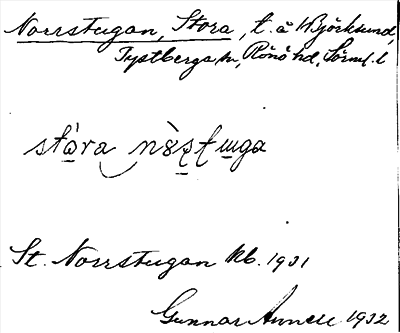 Norrstugan, Stora, t. å Björksund,
Tystberga sn, Rönö hd, Sörml. l
stɷ̀ra nɞ̀ʂʈɯga
St. Norrstugan kb. 1931
Gunnar Annell 1932